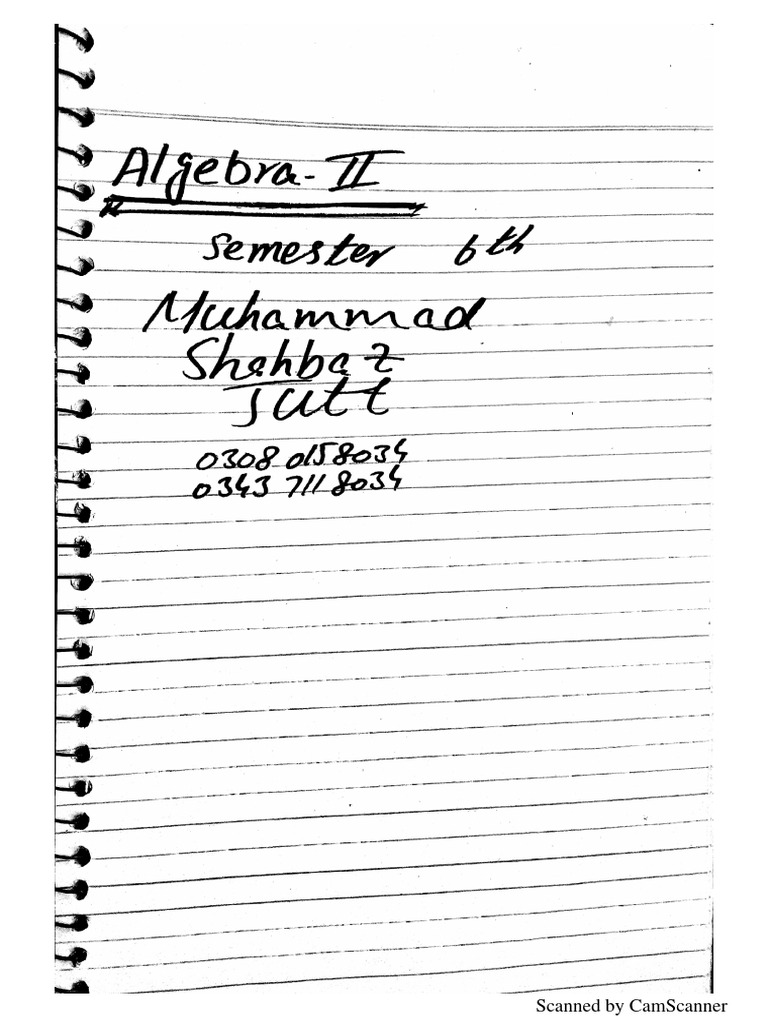 Algebra-II
Semester 6th
Muhammad
Shahbaz
Jutt
0308 0158034
0343 7118034
Scanned by CamScanner